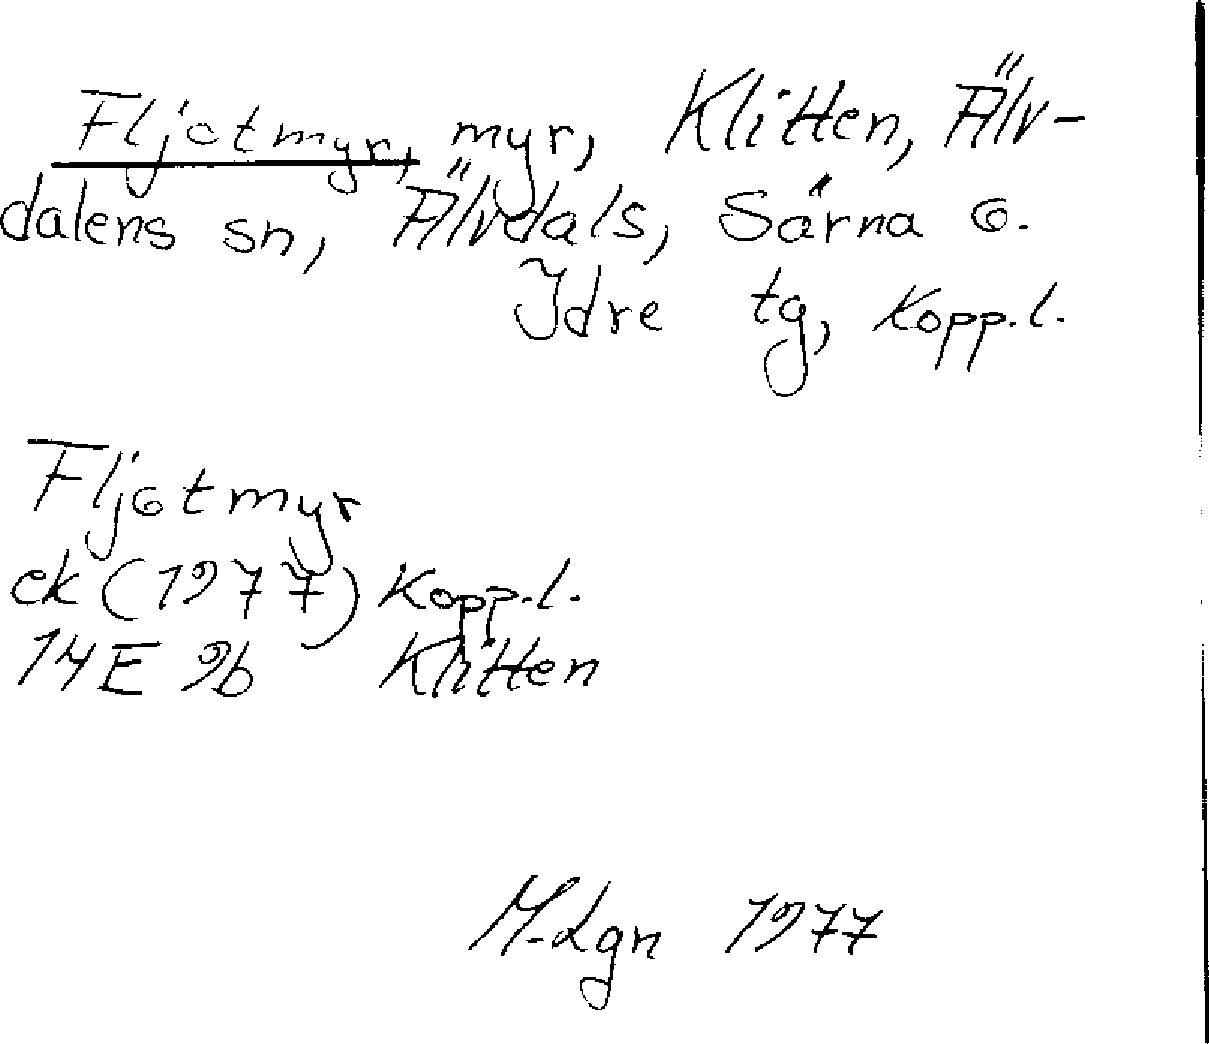 Fljotmyr, myr, Klitten, Älv-
dalens sn, Älvdals, Särna o.
Idre tg, Kopp.l.
Fljotmyr
ek (1977) Kopp.l.
14E 9b Klitten
M-Lgn 1977